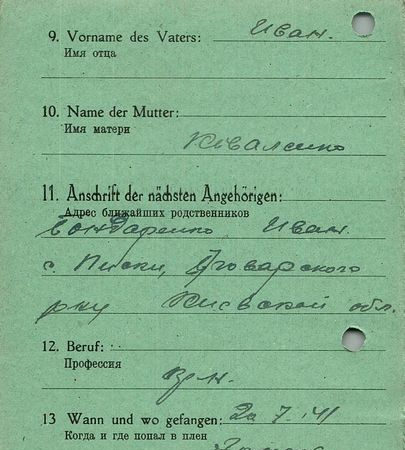 9. Vorname des Vaters: Иван.
Имя отца
10. Name der Mutter:
Имя матери
Коваленко
11. Anschrift der nächsten Angehörigen:
Адрес ближайших родственников
Бондаренко Иван.
с. Писки, Броварского
р-ну Киевской обл.
12. Beruf:
Профессия
13 Wann und wo gefangen: 20 7. 41
Когда и где попал в плен